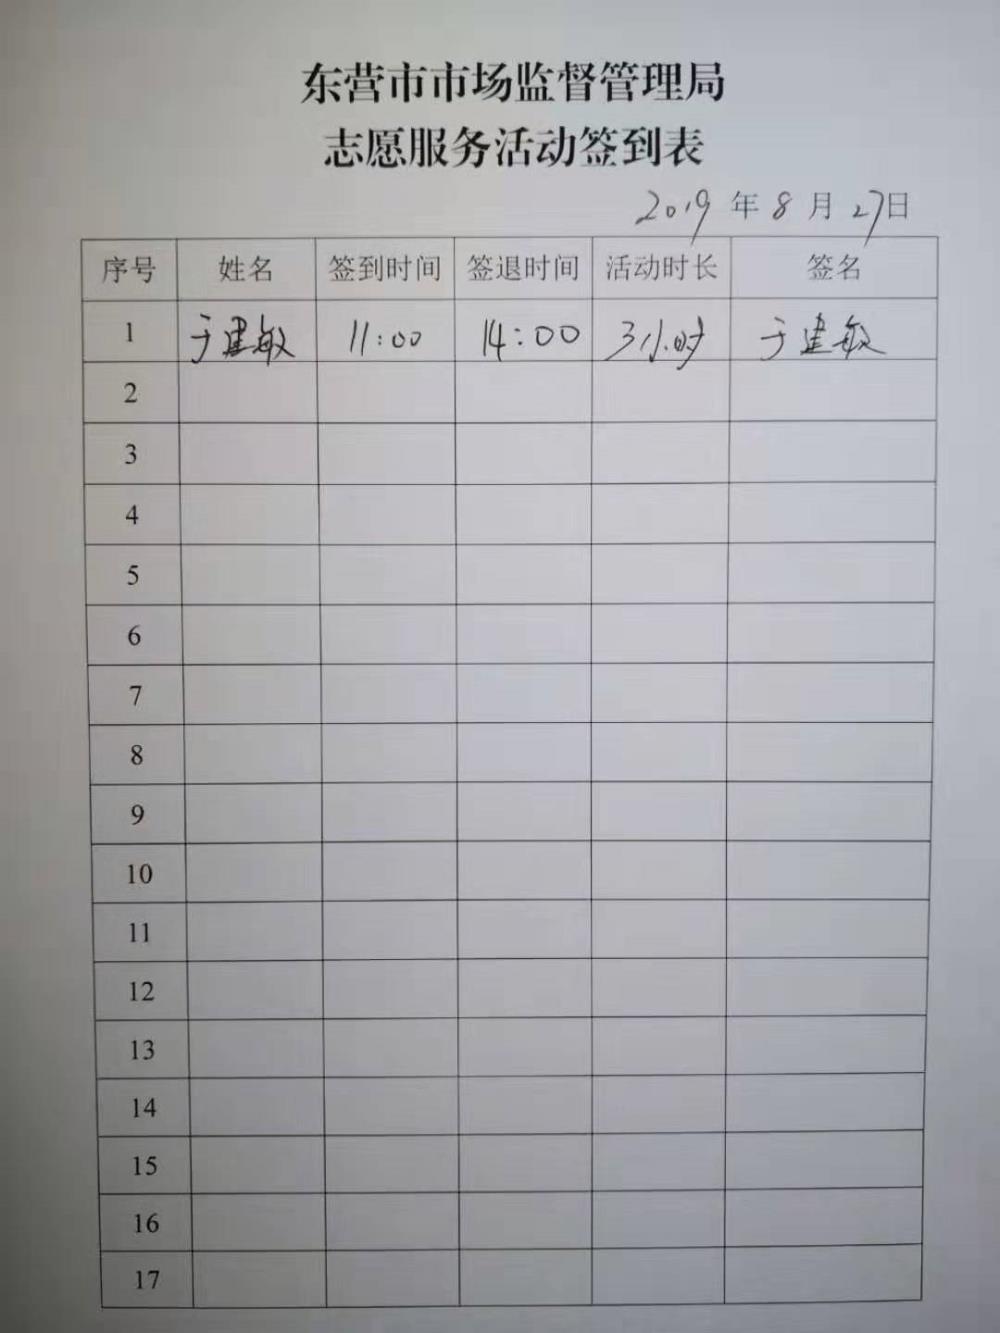 东营市市场监督管理局
志愿服务活动签到表
2019 年 8 月 27 日
序号 姓名 签到时间 签退时间 活动时长 签名
1 于建敏 11:00 14:00 3小时 于建敏
2
3
4
5
6
7
8
9
10
11
12
13
14
15
16
17